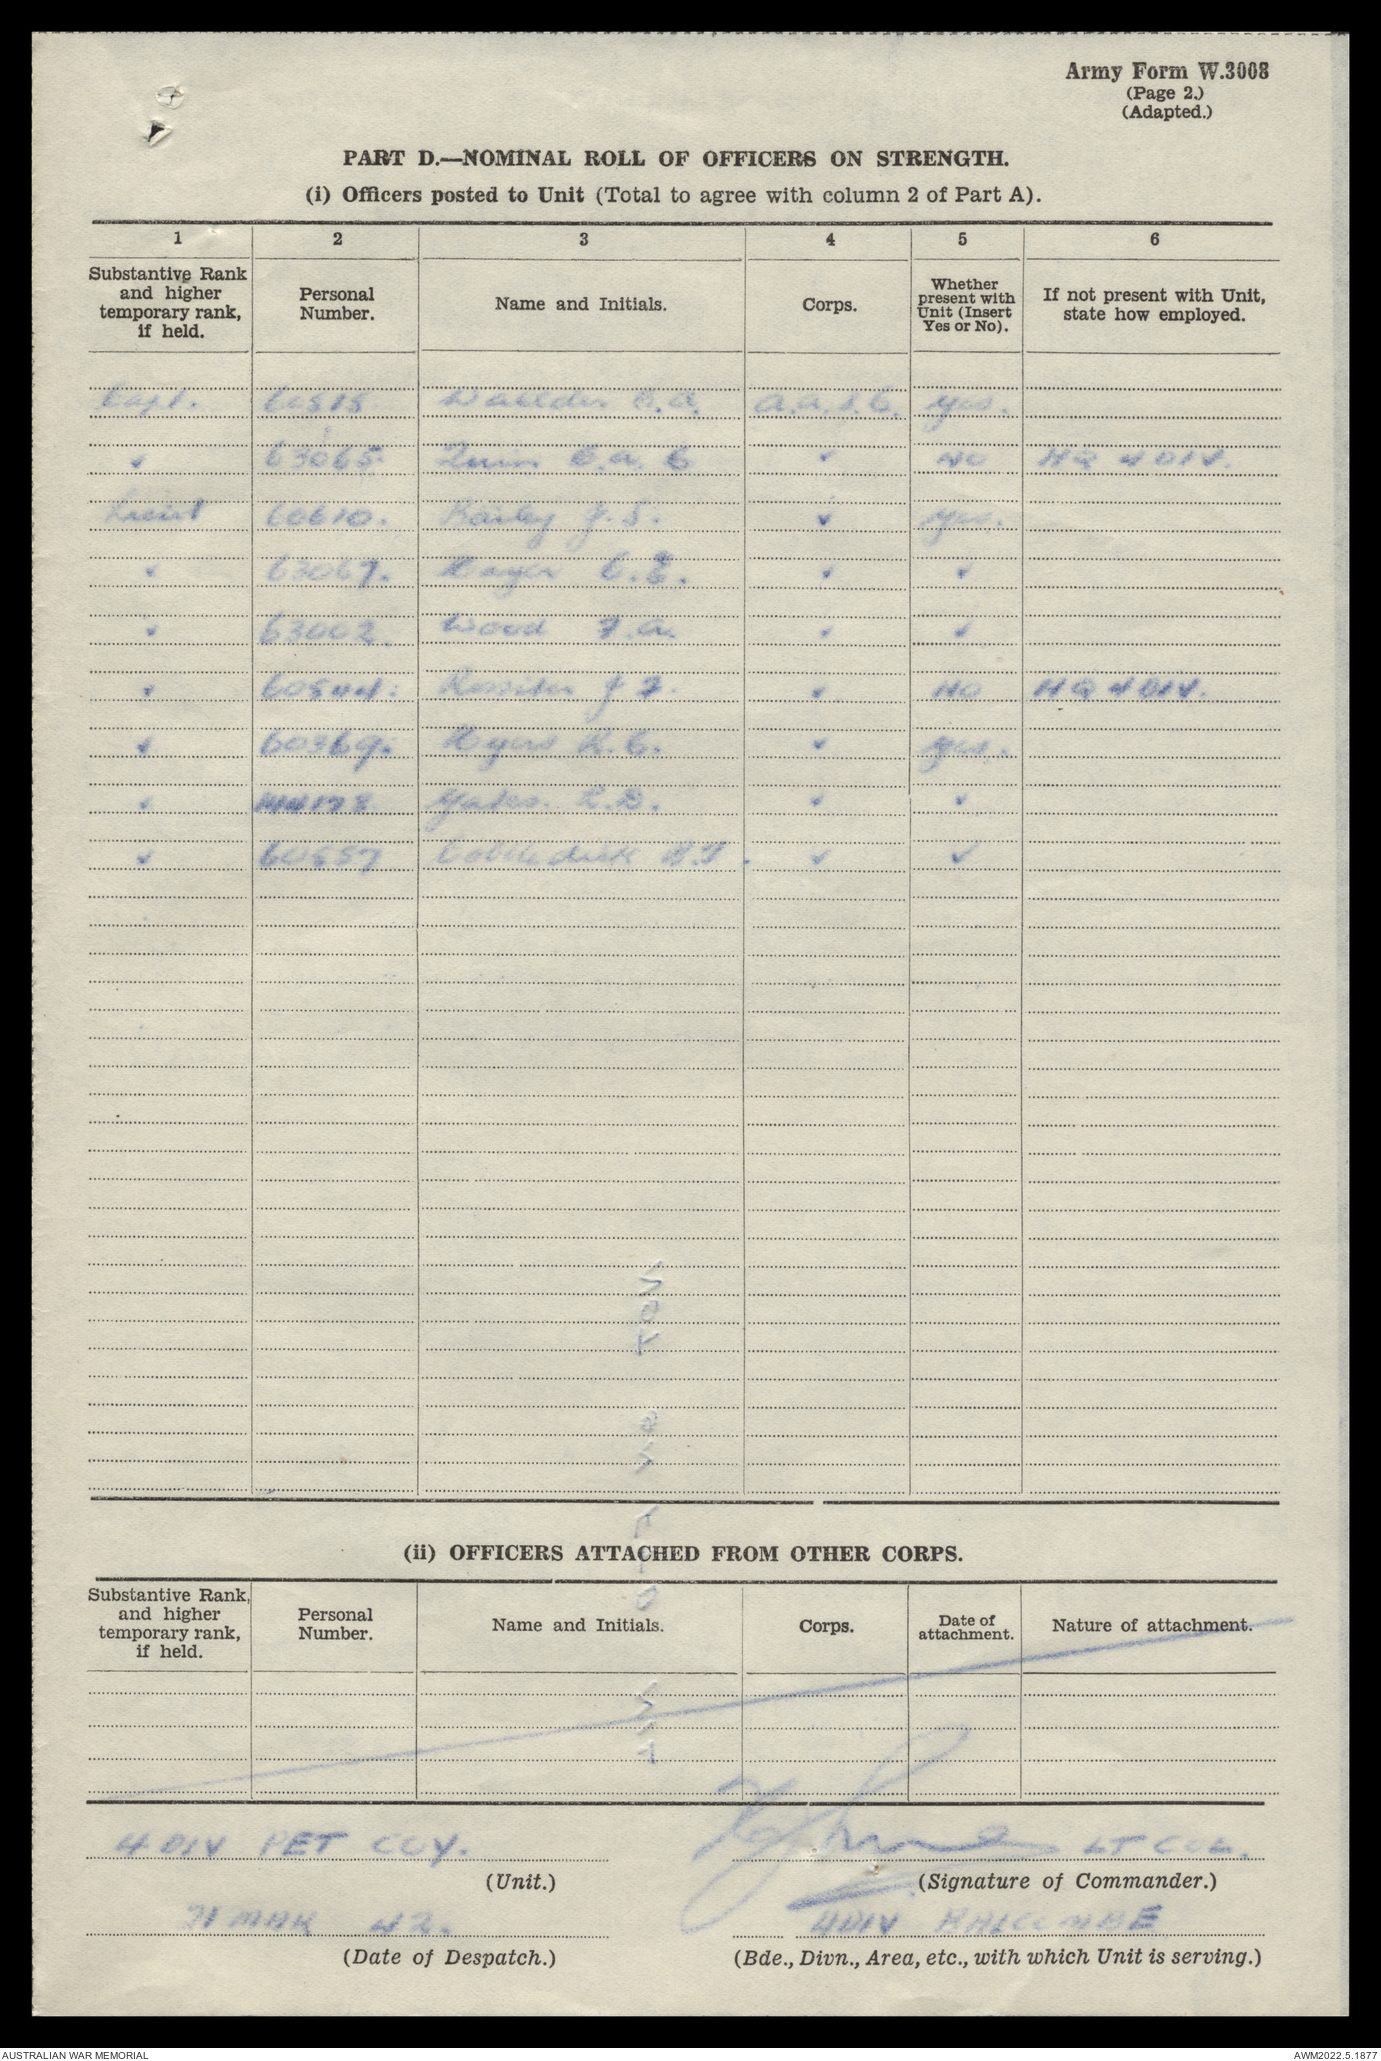 Army Form W.3008
(Page 2.)
(Adapted.)
PART D.—NOMINAL ROLL OF OFFICERS ON STRENGTH.
(i) Officers posted to Unit (Total to agree with column 2 of Part A).
1 2 3 4 5 6
Substantive Rank and higher temporary rank, if held. Personal Number. Name and Initials. Corps. Whether present with Unit (Insert Yes or No). If not present with Unit, state how employed.
Capt. A.A.S.C. yes.
✓ 63065. ✓ NO HQ 4 DIV.
Lieut 60610. Bailey J. S. ✓ yes.
✓ 63067. ✓ ✓
✓ 63002. Wood F. A. ✓ ✓
✓ Rossiter J F. ✓ NO HQ 4 DIV.
✓ 60369. K. C. ✓ yes.
✓ Yates. R.D. ✓ ✓
✓ 60557 ✓ ✓
(ii) OFFICERS ATTACHED FROM OTHER CORPS.
Substantive Rank, and higher temporary rank, if held. Personal Number. Name and Initials. Corps. Date of attachment. Nature of attachment.
4 DIV PET COY. LT COL.
(Unit.) (Signature of Commander.)
MAR 42. 4 DIV BALCOMBE
(Date of Despatch.) (Bde., Divn., Area, etc., with which Unit is serving.)
AUSTRALIAN WAR MEMORIAL AWM2022.5.1877